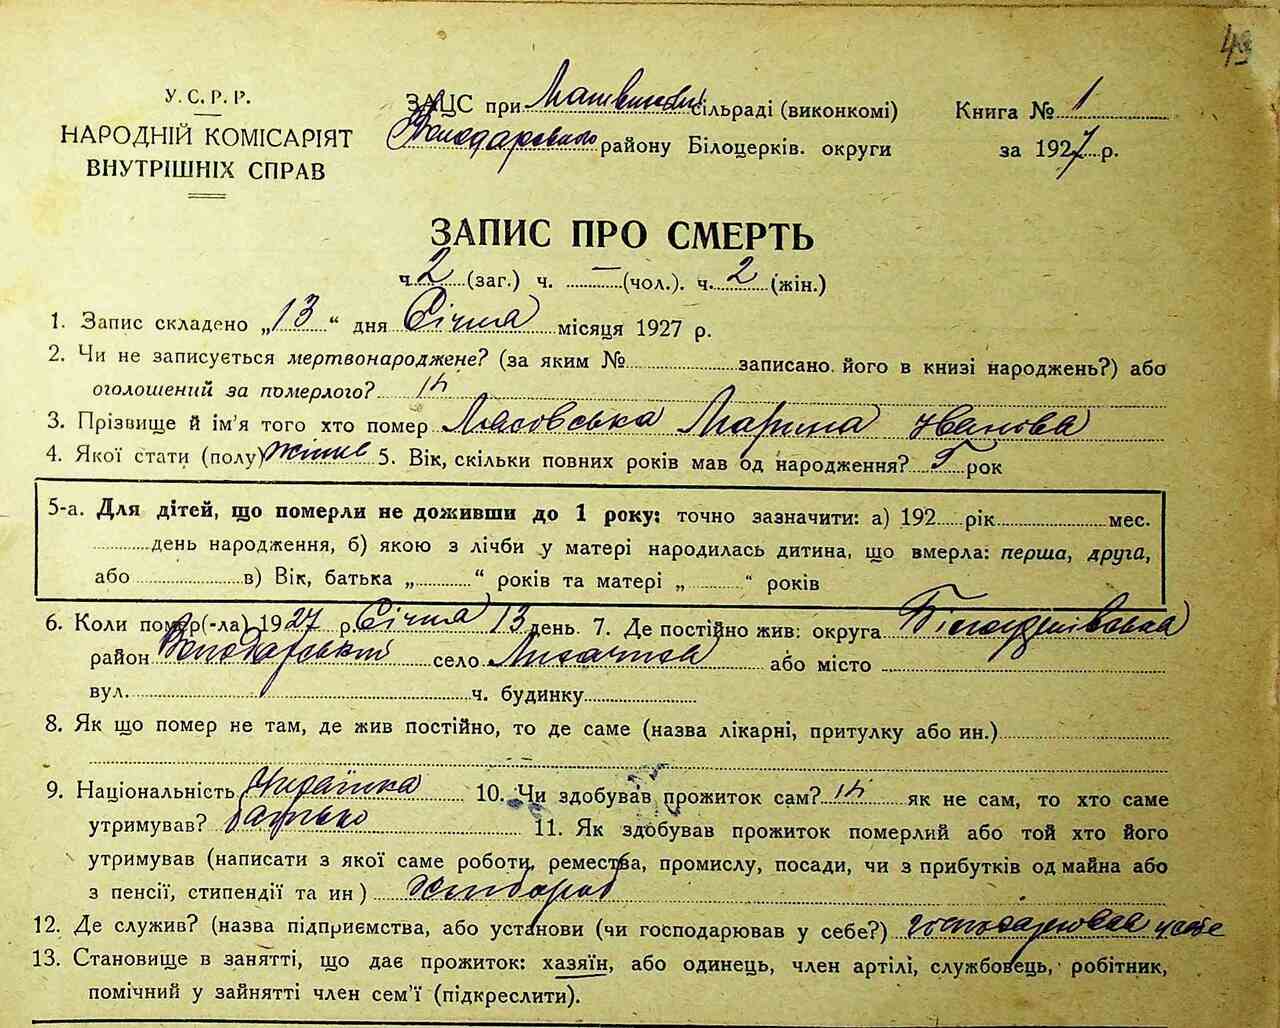 49
У. С. Р. Р.
НАРОДНІЙ КОМІСАРІЯТ
ВНУТРІШНІХ СПРАВ
ЗАЦС при сільраді (виконкомі)
Володарського району Білоцерків. округи
Книга № 1
за 1927 р.
ЗАПИС ПРО СМЕРТЬ
ч. 2 (заг.) ч. — (чол.). ч. 2 (жін.)
1. Запис складено „13“ дня Січня місяця 1927 р.
2. Чи не записується мертвонароджене? (за яким № записано його в книзі народжень?) або
оголошений за померлого? ні
3. Прізвище й ім'я того хто помер Лясовська Марина Іванова
4. Якої стати (полу) жіноє 5. Вік, скільки повних років мав од народження? рок
5-а. Для дітей, що померли не доживши до 1 року: точно зазначити: а) 192 рік мес.
день народження, б) якою з лічби у матері народилась дитина, що вмерла: перша, друга,
або в) Вік, батька „ “ років та матері „ “ років
6. Коли помер(-ла) 1927 р. Січня 13 день. 7. Де постійно жив: округа Білоцерківська
район Володарський село або місто
вул. ч. будинку
8. Як що помер не там, де жив постійно, то де саме (назва лікарні, притулку або ин.)
9. Національність Українка 10. Чи здобував прожиток сам? ні як не сам, то хто саме
утримував? батько 11. Як здобував прожиток померлий або той хто його
утримував (написати з якої саме роботи, ремества, промислу, посади, чи з прибутків од майна або
з пенсії, стипендії та ин ) хлібороб
12. Де служив? (назва підприємства, або установи (чи господарював у себе?) господарював у себе
13. Становище в занятті, що дає прожиток: хазяїн, або одинець, член артілі, службовець, робітник,
помічний у зайнятті член сем'ї (підкреслити).